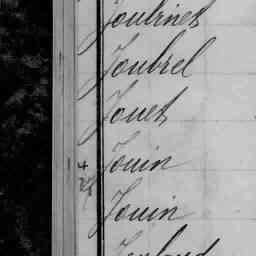 Joubinet
Joubrel
Jouet
Jouin
Jouin